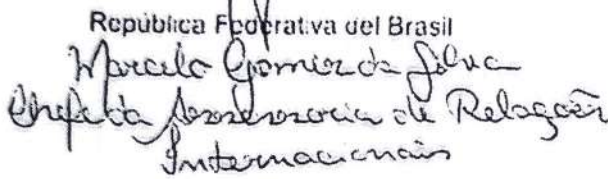 República Federativa del Brasil
Marcelo Gomez da Silva
Chefe da Assessoria de Relações
Internacionais